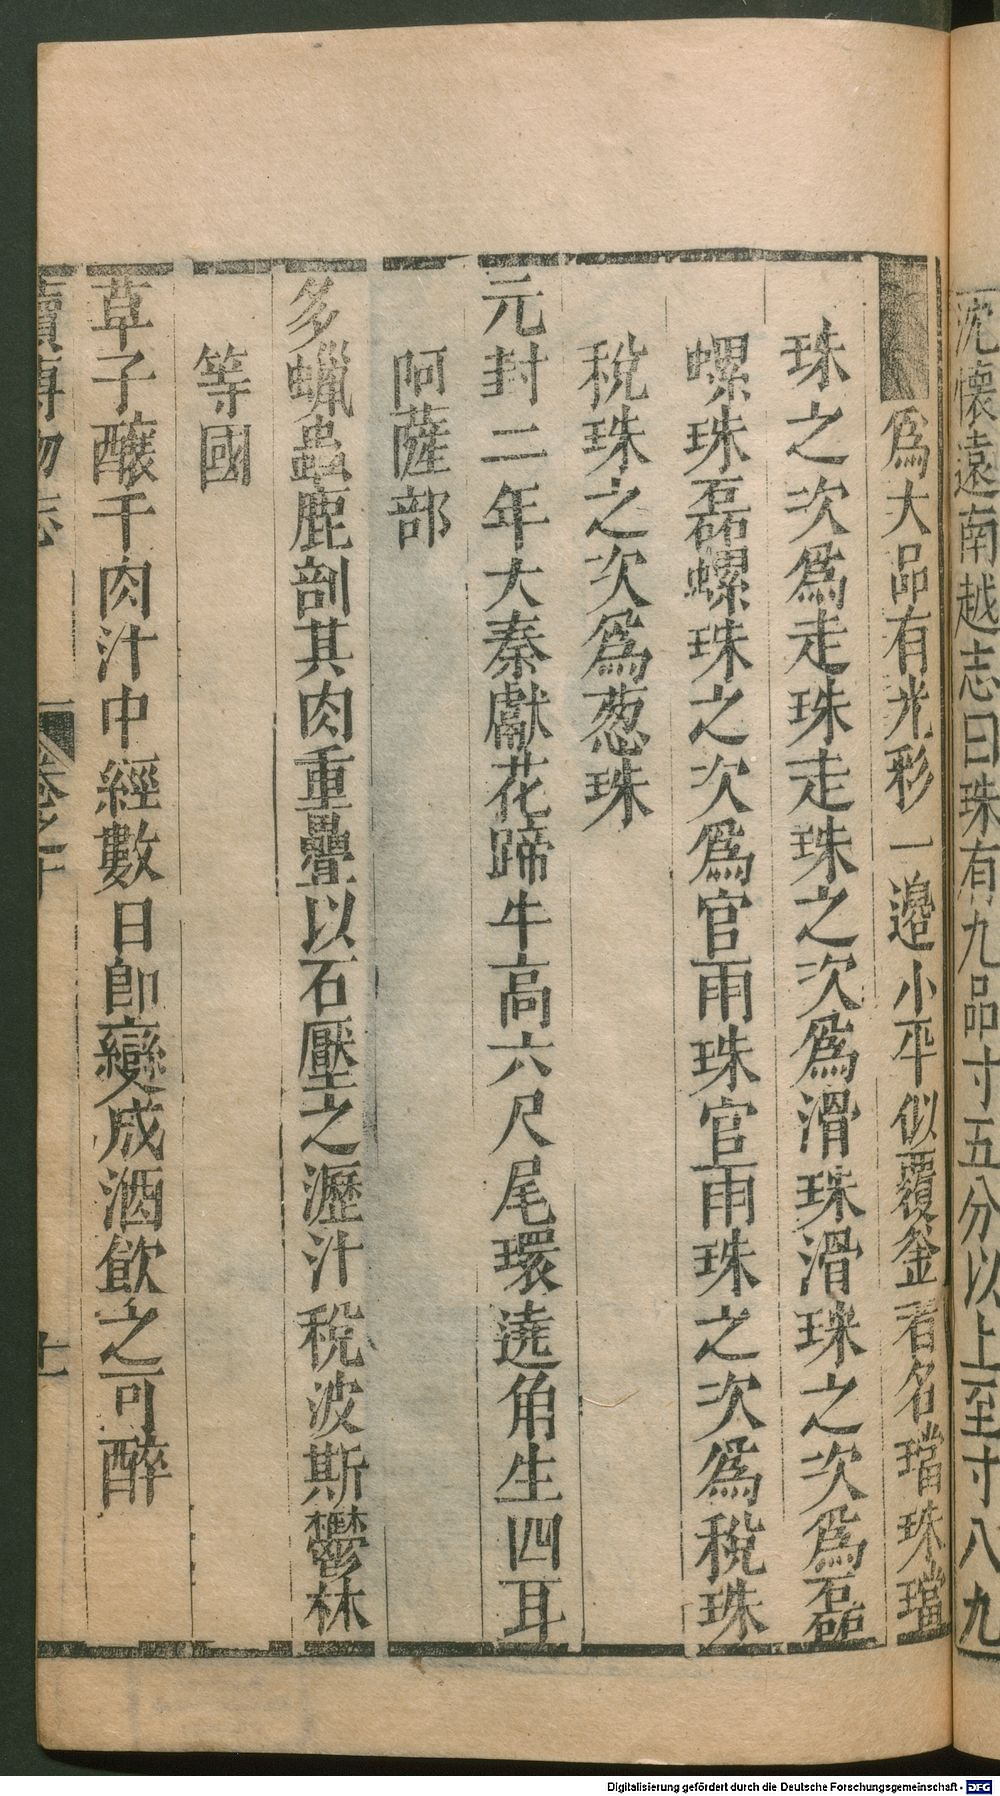 沈懷遠南越志曰珠有九品寸五分以上至寸八九
爲大品有光彩一邉小平似覆釜者名璫珠璫
珠之次爲走珠走珠之次爲滑珠滑珠之次爲磊
螺珠磊螺珠之次爲官雨珠官雨珠之次爲稅珠
稅珠之次爲葱珠
元封二年大秦獻花蹄牛高六尺尾環遶角生四耳
阿薩部
多蝋蟲鹿剖其肉重疊以石壓之瀝汁稅波斯鬱林
等國
草子釀于肉汁中經數日即變成酒飲之可醉
續博物志 卷之十 十
Digitalisierung gefördert durch die Deutsche Forschungsgemeinschaft - DFG